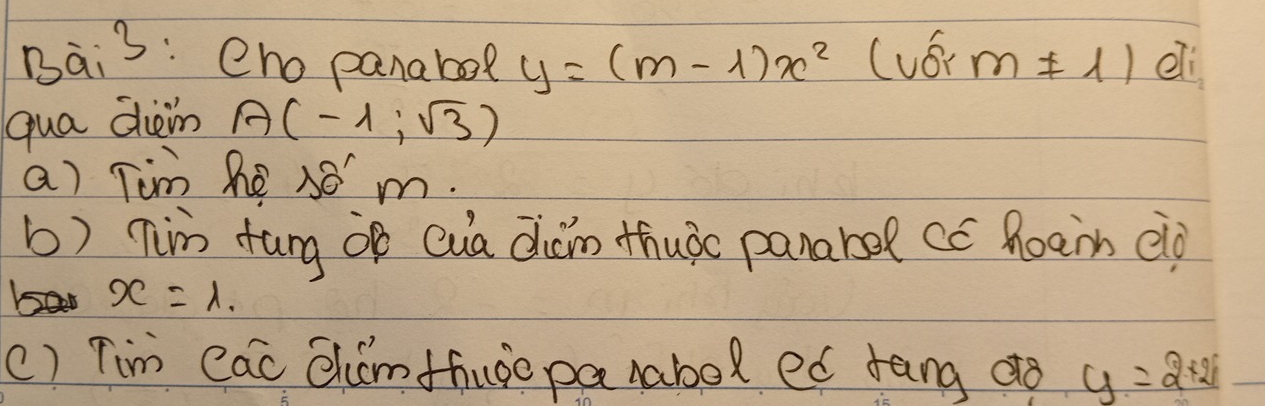 Bài 3: Cho parabol y = (m - 1)x² (với m ≠ 1) đi
qua điểm A(-1; √3)
a) Tìm hệ số m.
b) Tìm tung độ của điểm thuộc parabol có hoành độ
x = 1.
c) Tìm các điểm thuộc parabol có tung độ y = 2+2